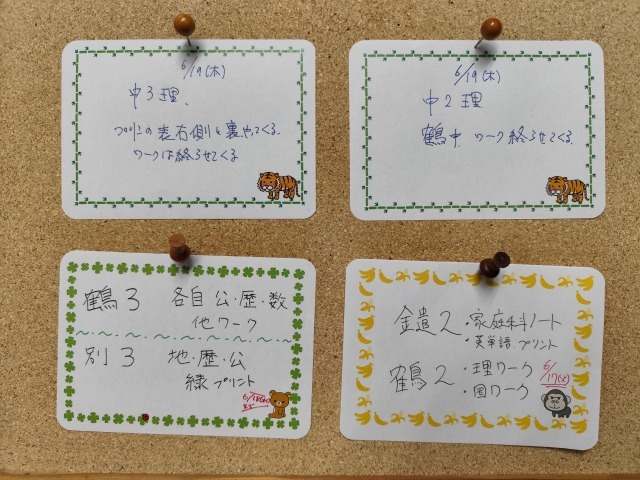 6/19(木)
中3理、
プリントの表右側と裏やってくる.
ワークは終らせてくる
6/19(木)
中2理
鶴中 ワーク終らせてくる.
鶴3 各自 公・歴・数
他ワーク
別3 地・歴・公
緑プリント
金遣2 ・家庭科ノート
・英単語プリント
鶴2 ・理ワーク 6/17(火)
・国ワーク